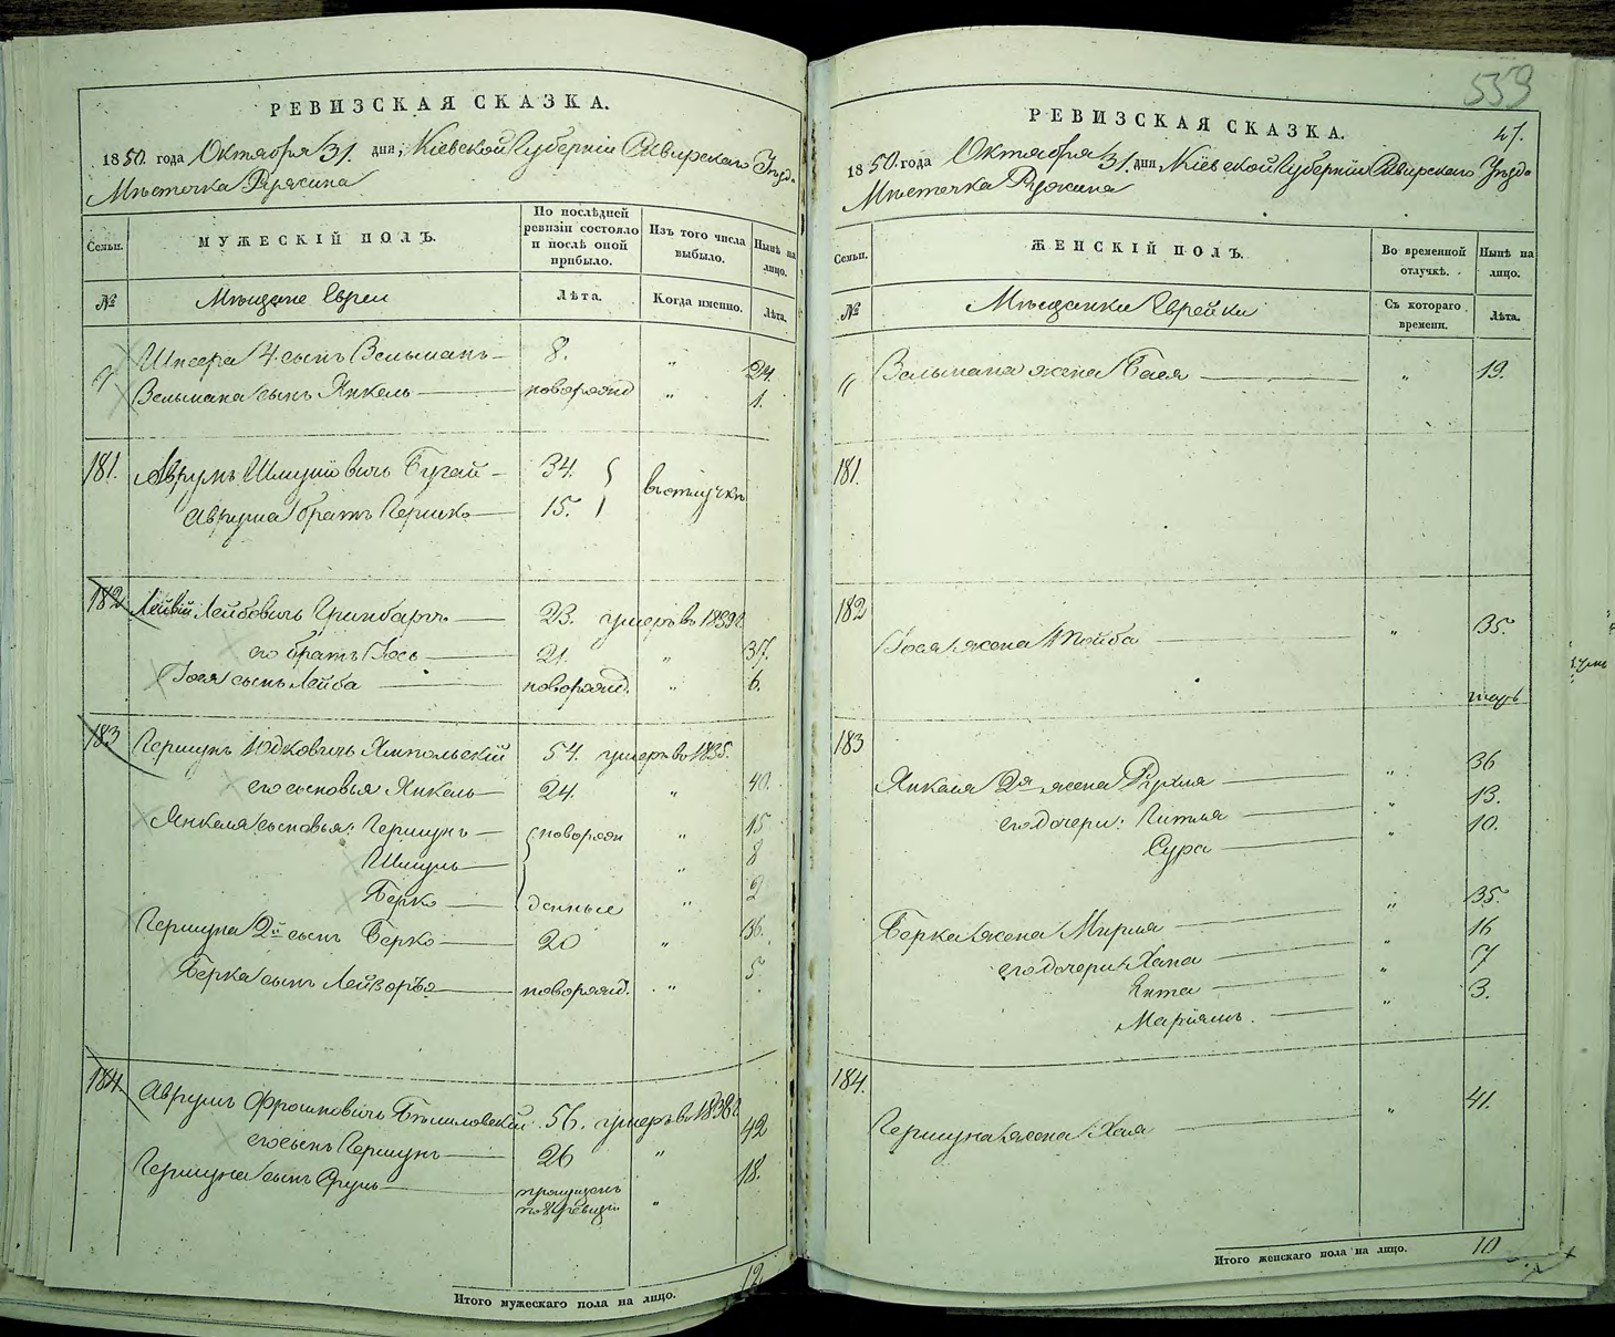 РЕВИЗСКАЯ СКАЗКА.
1850. года Октября 31. дня, Кіевской Губерніи Сквирскаго Уѣзд.
Мѣстечка Ружина
Семьи.
МУЖЕСКІЙ ПОЛЪ.
По послѣдней ревизіи состояло и послѣ оной прибыло.
Изъ того числа выбыло.
Нынѣ на лицо.
№
Мѣщане Евреи
Лѣта.
Когда именно.
Лѣта.
4. сынъ Вельманъ 8. " 24.
Вельмана сынъ Янкель новорожд " 1.
181. Аврумъ Шмуйловичь Бугай 34.
въ отлучкѣ
Аврума братъ Гершко 15.
182 Лейбовичь Гринбаргъ 23. умеръ въ 1839
его братъ Іось 21. " 37.
Іося сынъ Лейба новорожд. " 6.
183 Гершунъ Юдковичь Ямпольскій 54. умеръ въ 1835.
его сыновья Янкель 24. " 40.
Янкеля сыновья: Гершунъ новорож " 15
Шмуль " 8
Берко денные " 2
Гершуна 2й сынъ Берко 20 " 36.
Берка сынъ Лейзоръ новорожд. " 5
184. Аврумъ Фроимовичь 56. умеръ въ 1838
его сынъ Гершунъ 26 " 42
Гершуна сынъ Сруль пропущенъ по 8й ревизіи " 18.
Итого мужескаго пола на лицо. 12.
559
47.
РЕВИЗСКАЯ СКАЗКА.
1850. года Октября 31. дня Кіевской Губерніи Сквирскаго Уѣзда
Мѣстечка Ружина
Семьи.
ЖЕНСКІЙ ПОЛЪ.
Во временной отлучкѣ.
Нынѣ на лицо.
№
Мѣщанки Еврейки
Съ котораго времени.
Лѣта.
Вельмана жена Бася " 19.
181.
182
Іося жена " 35.
183
Янкеля 2я жена Рухля " 36
его дочери: Гитля " 13.
Сура " 10.
Берка жена Мирля " 35.
его дочери: Хана " 16
Ента " 7
Маріямъ. " 3.
184.
Гершуна жена Хая " 41.
Итого женскаго пола на лицо. 10